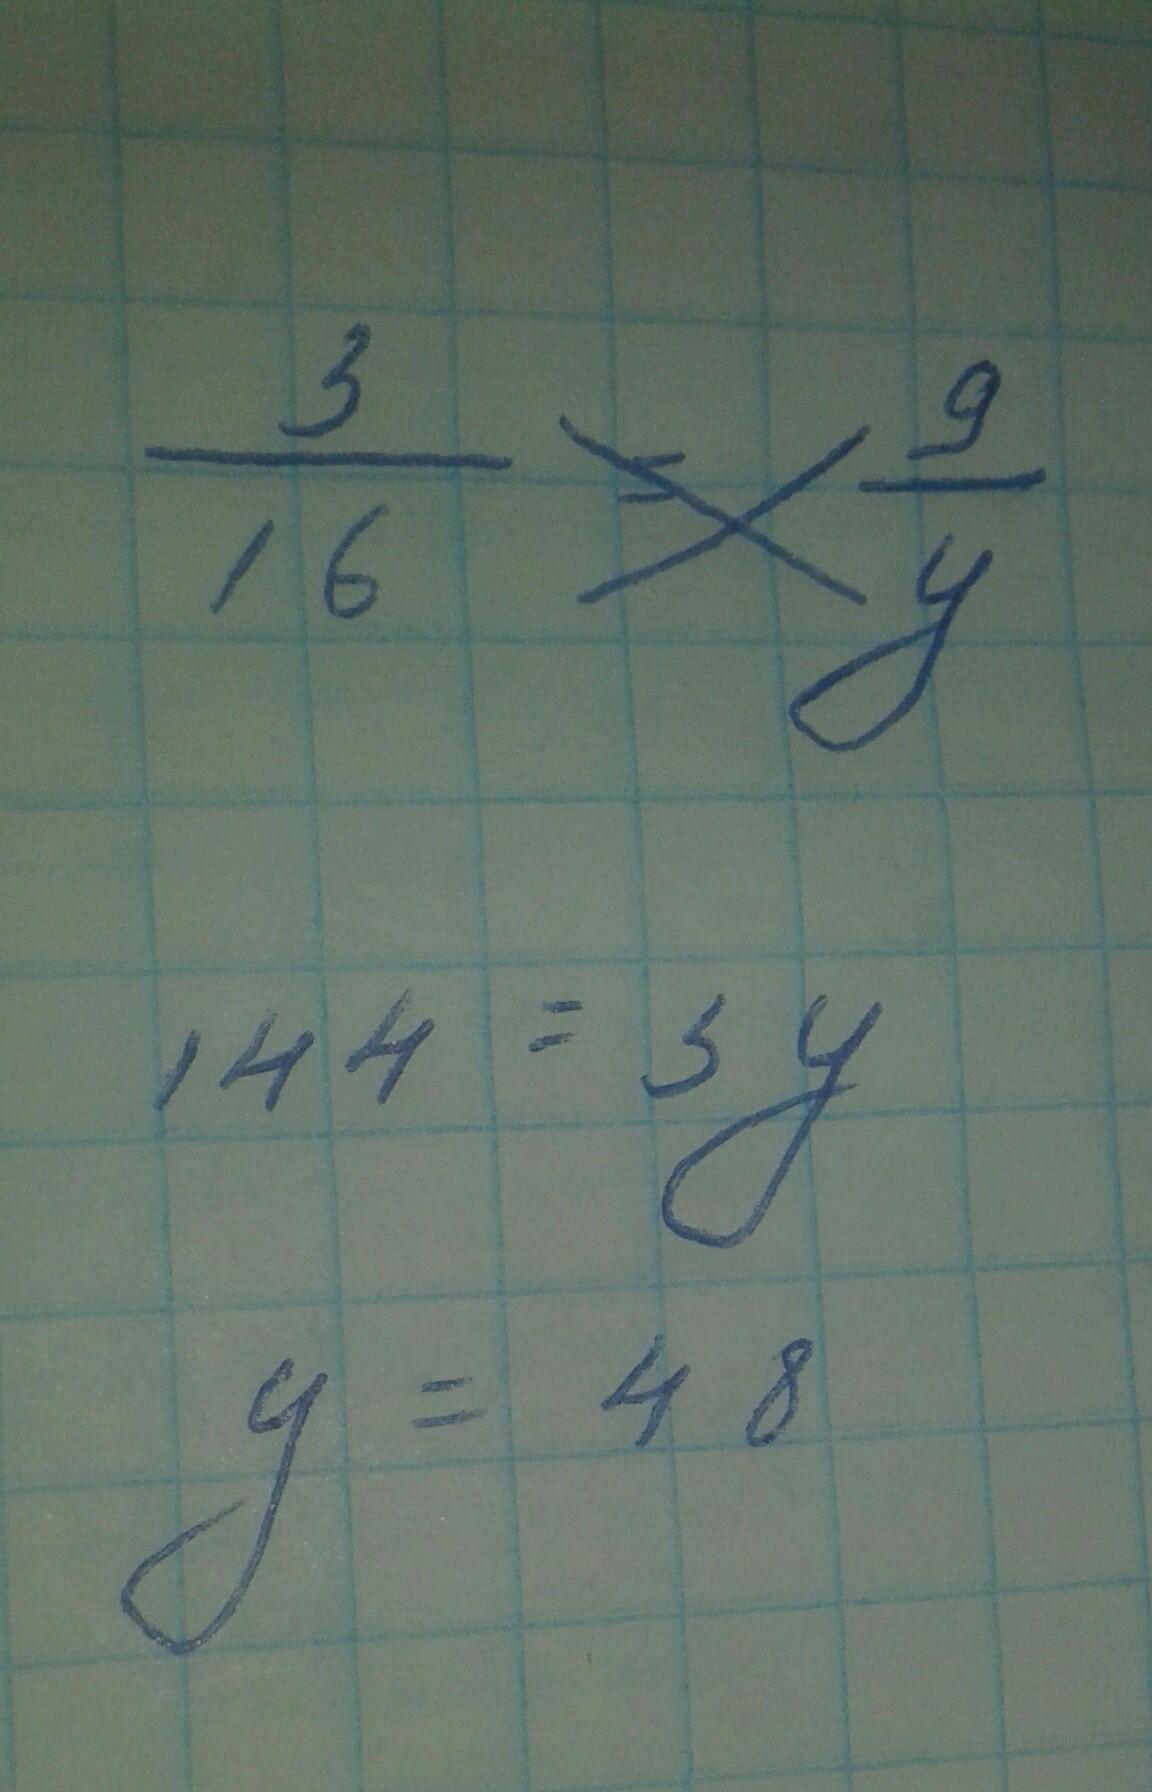 3/16 = 9/y
144 = 3y
y = 48